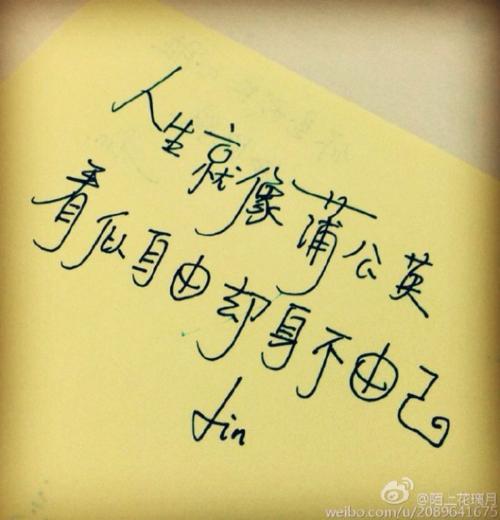 人生就像蒲公英
看似自由却身不由己
Jin
@陌上花璃月
weibo.com/u/2089641675